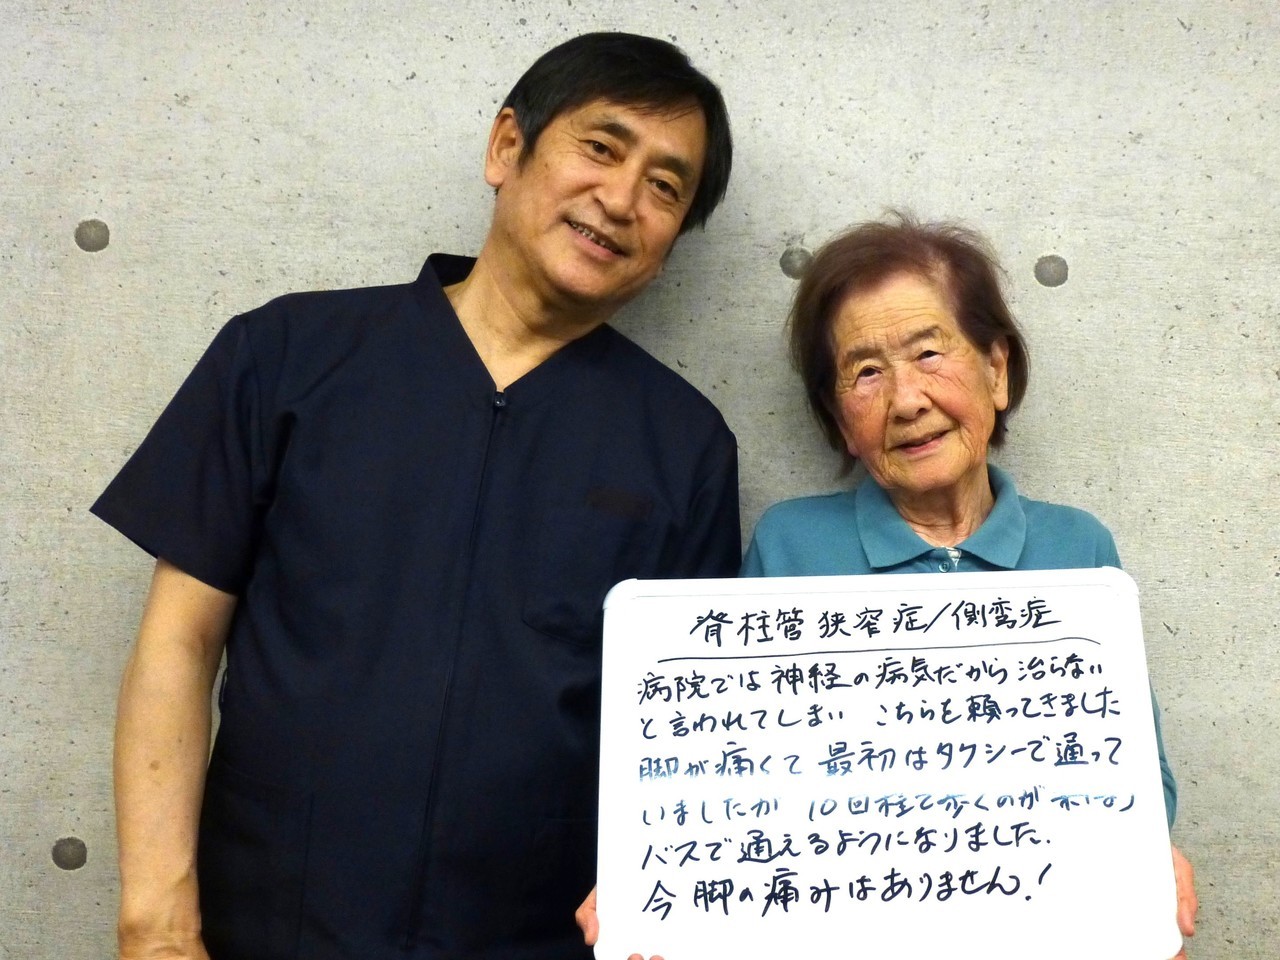 脊柱管狭窄症/側弯症
病院では神経の病気だから治らない
と言われてしまい こちらを頼ってきました
脚が痛くて 最初はタクシーで通って
いましたが 10回程で歩くのが
バスで通えるようになりました.
今脚の痛みはありません!